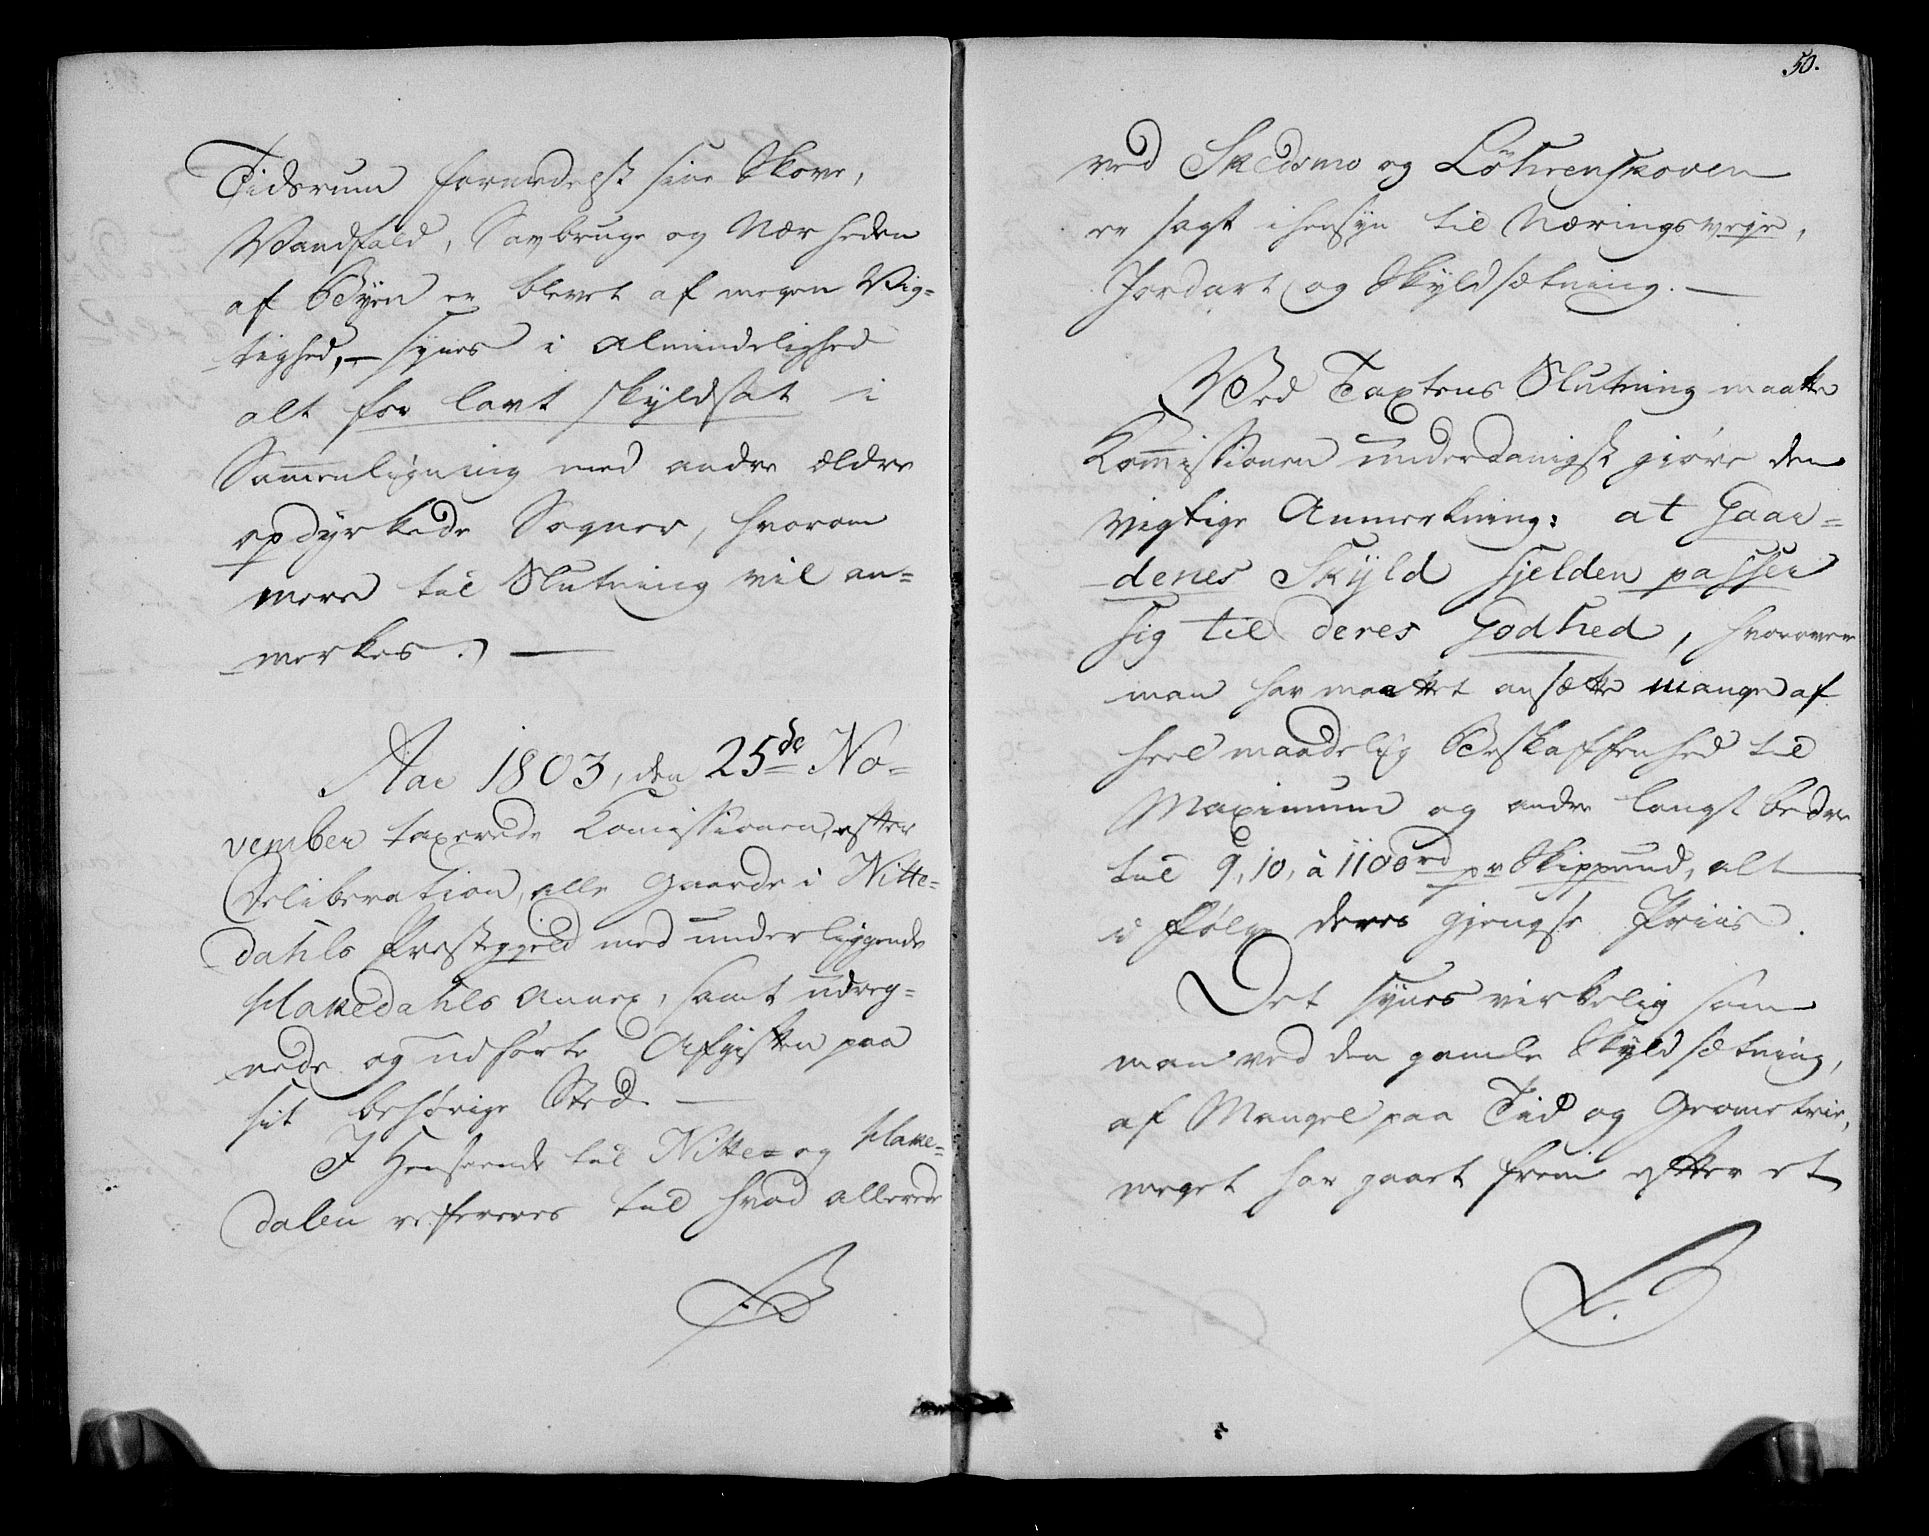 Tidsrum formedelst sine Skove,
Vandfald, Savbruge og Nærheden
af Byen er blevet af megen Vig=
tighed, — synes i Almindelighed
alt for lavt skyldsat i
Sammenligning med andre ældre
opdyrkede Sogner, hvorom
mere til Slutning vil an=
merkes. —
Aar 1803, den 25de No=
vember taxerede Komissionen, efter
Deliberation, alle Gaarde i Nitte=
dahls Præstegjeld med underliggende
Hakedahls Annex, samt udreg=
nede og udførte Afgiften paa
sit behørige Sted. —
I Henseende til Nitte= og Hake=
dalen refereres til hvad allerede
50.
ved Skedsmo og Löhrenskoven
er sagt i hensyn til Næringsveje,
Jordart og Skyldsætning. —
Ved Taxtens Slutning maatte
Kommissionen underdanigst giøre den
vigtige Anmerkning: at Gaar=
denes Skyld sjelden passer
sig til deres Godhed, hvorover
man har maattet ansætte mange af
heel maadelig Beskaffenhed til
Maximum og andre langt bedre
til 9, 10, à 1100 rd pr Skippund, alt
i Følge deres gjengse Priis.
Det synes virkelig som
man ved den gamle Skyldsætning,
af Mangel paa Tid og Geometrie,
meget har gaaet frem efter et